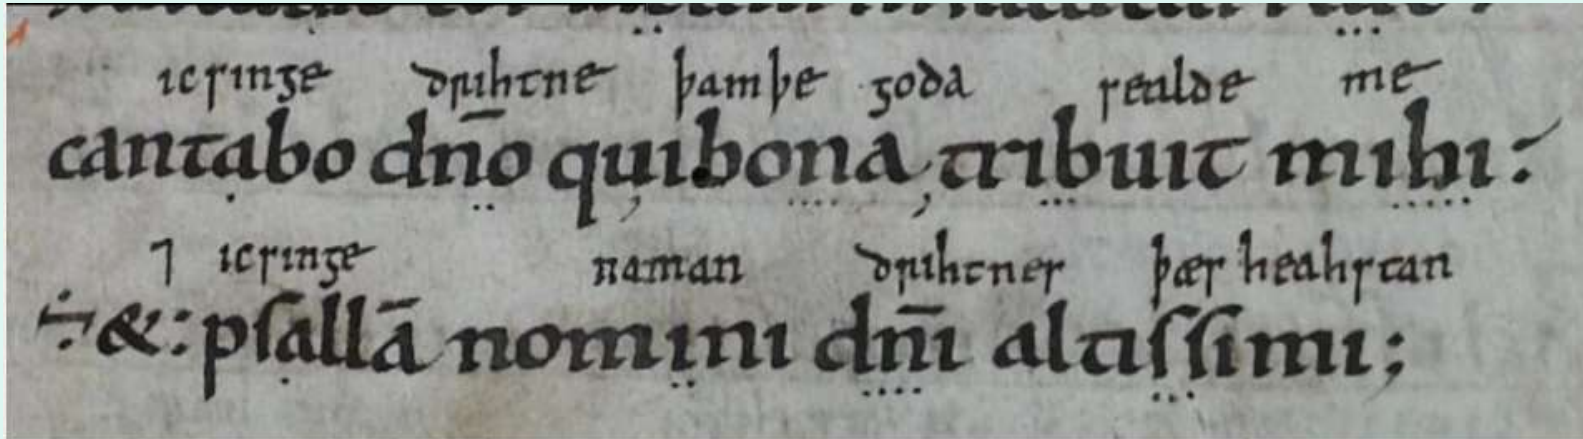 ic singe drihtne þam þe goda sealde me
cantabo dn̄o qui bona tribuit mihi:
⁊ ic singe naman drihtnes þæs heahstan
÷&: psallā nomini dn̄i altissimi;